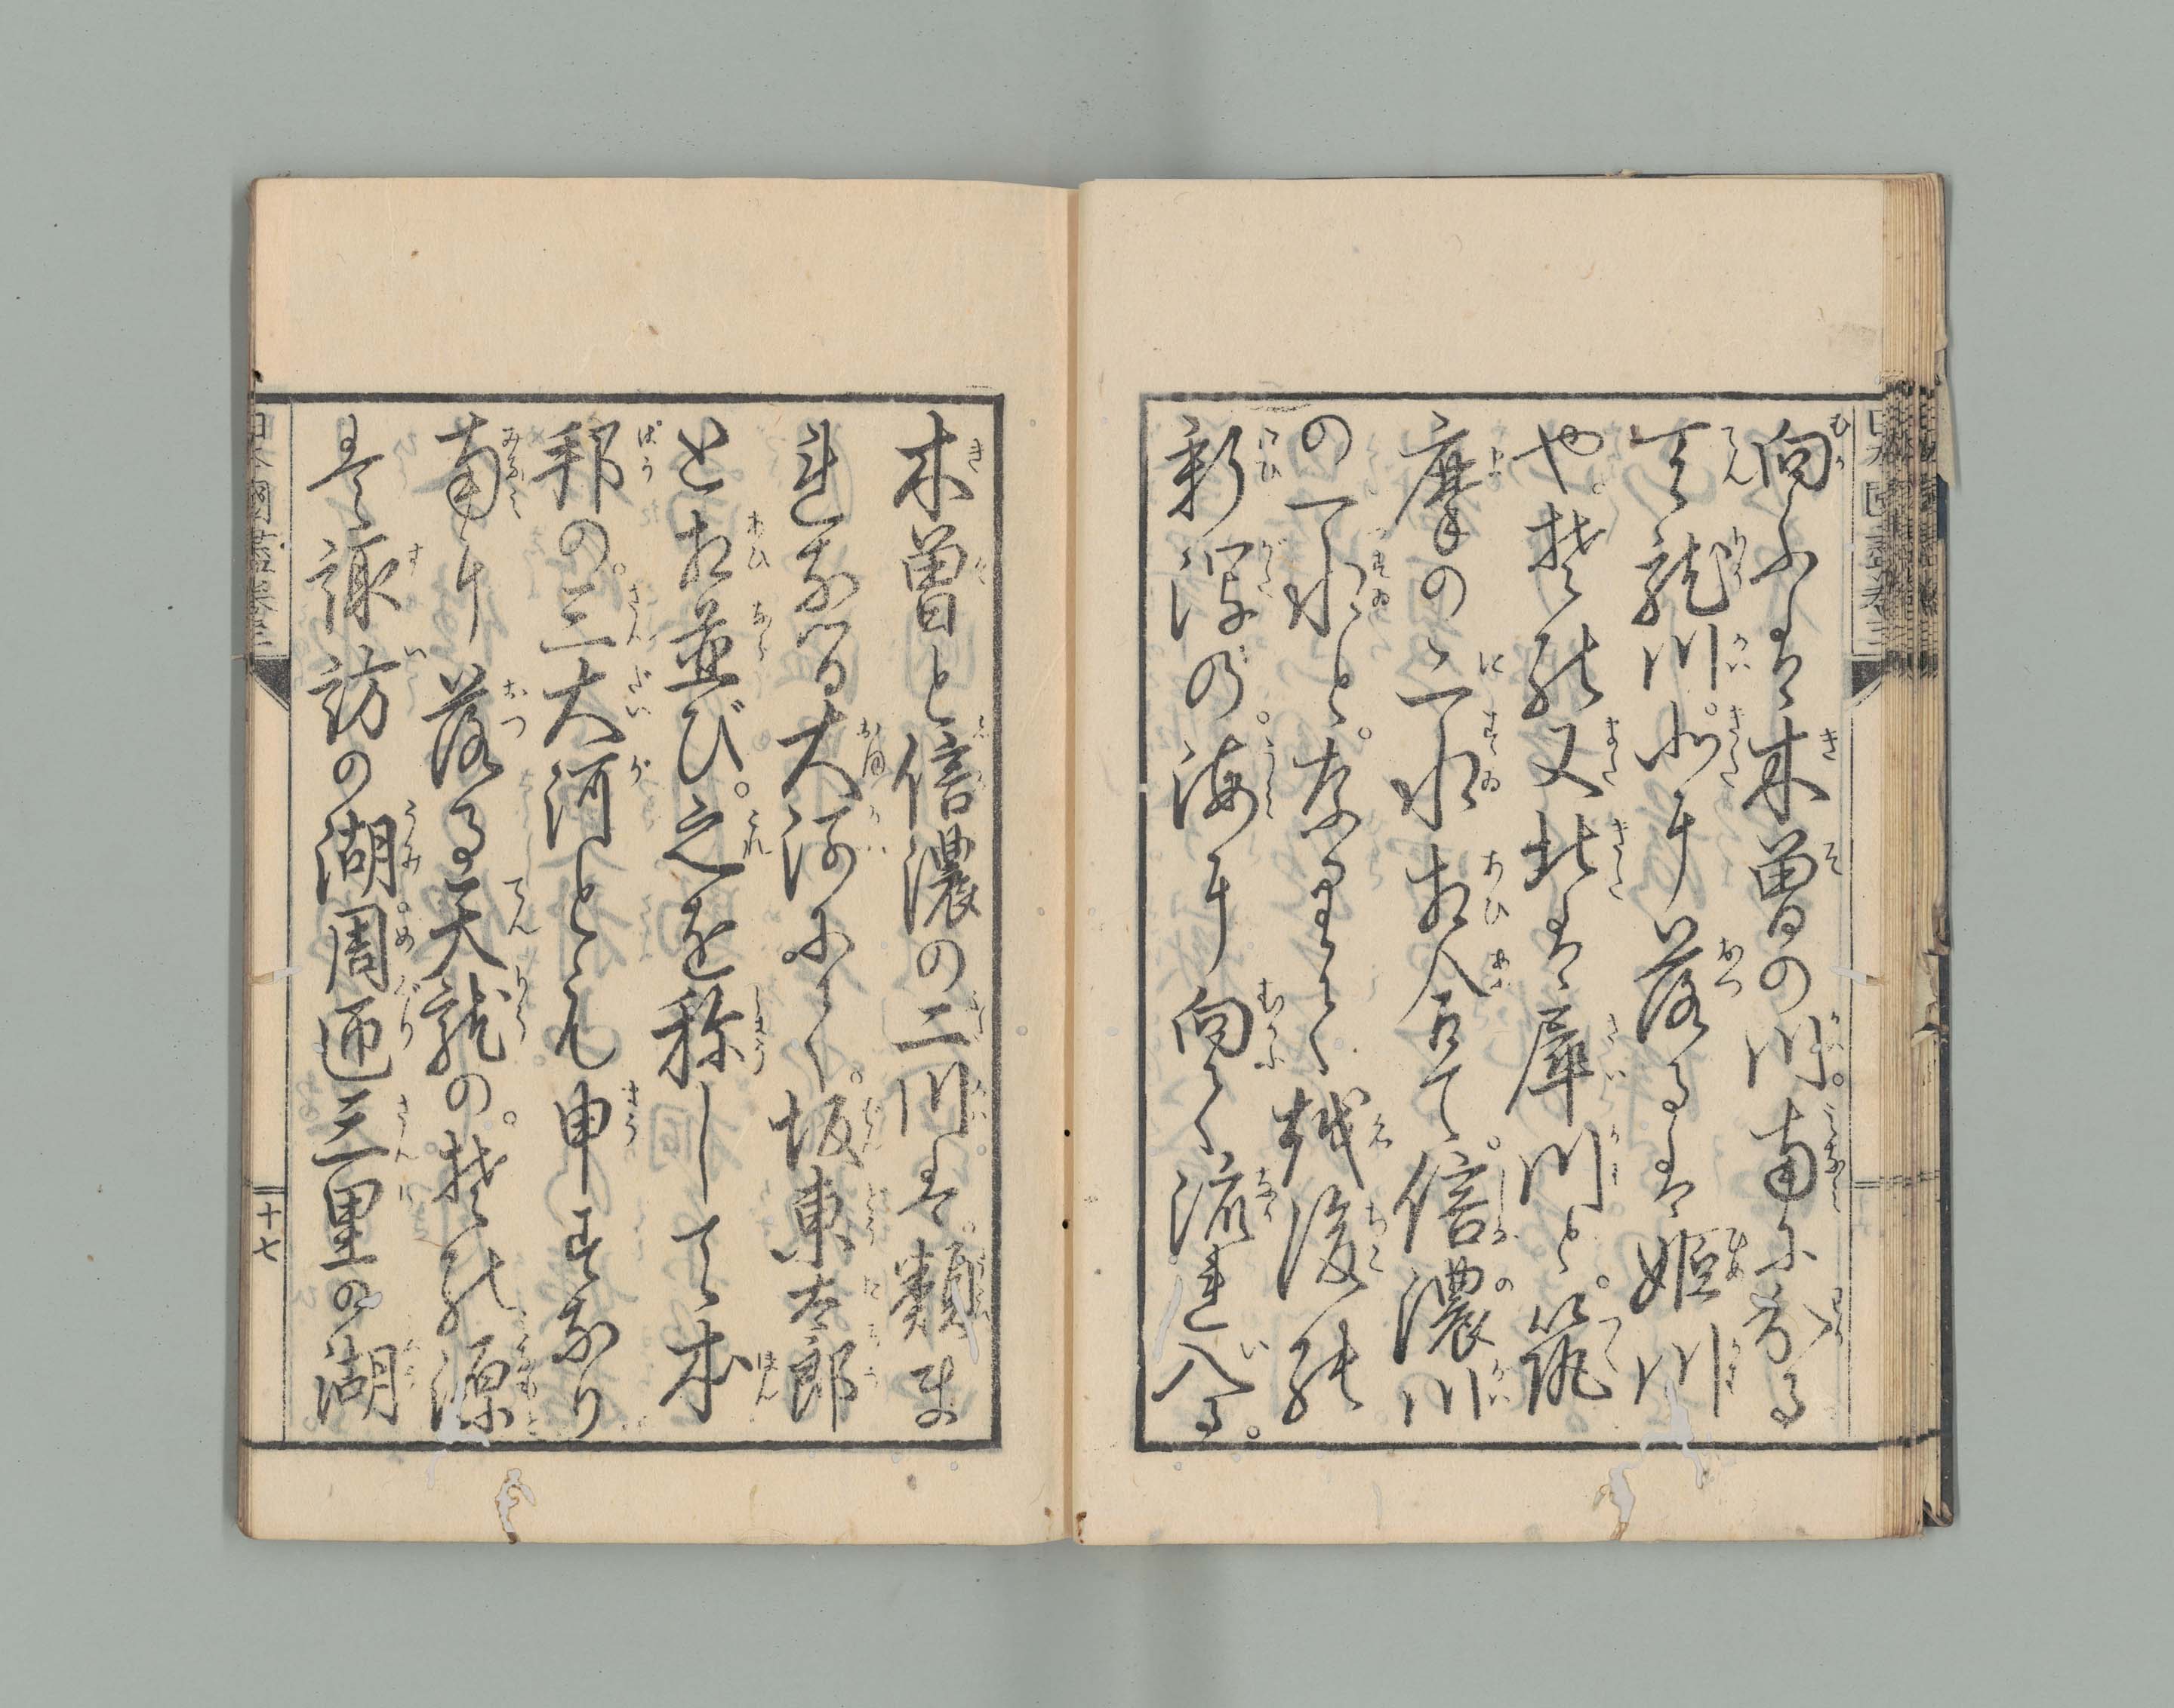 向ふは木曽の川。南に劣る
天龍川。北に落るは姫川
や。拠能又北は犀川と。筑
摩の二水相入合て。信濃川
の一水と。なりて越後能
新潟の。海に向て流れ入る。
木曽と信濃の二川は。類ま
れなる大河にて。坂東太郎
と相並び。之を称して本
邦の。三大河とも申すなり
南に落る天龍の。拠能源
は諏訪の湖。周匝三里の湖
十七